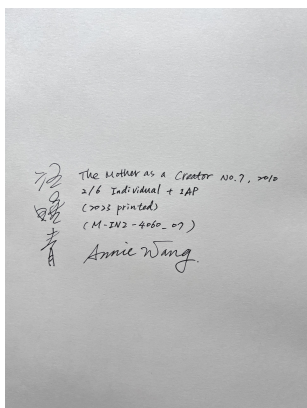 汪曉青
The Mother as a Creator NO.7, 2010
2/6 Individual + 1AP
(2023 printed)
(M-IN2-4060_07)
Annie Wang.